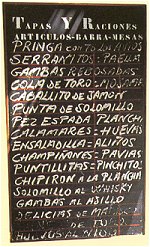 TAPAS Y RACIONES
ARTICULOS-BARRA-MESAS
PRINGA CON TO LO
SERRANITOS-PAELLA
GAMBAS REBOSADAS
COLA DE TORO-MOSAIK
CABALLITO DE JAMON
PUNTA DE SOLOMILLO
PEZ ESPADA PLANCH
CALAMARES-HUEVAS
ENSALADILLA-ALIÑOS
CHAMPIÑONES-PAVIAS
PUNTILLITAS-PINCHITO
CHIPIRON A LA PLANCHA
SOLOMILLO AL WHISKY
GAMBAS AL AJILLO
DELICIAS DE